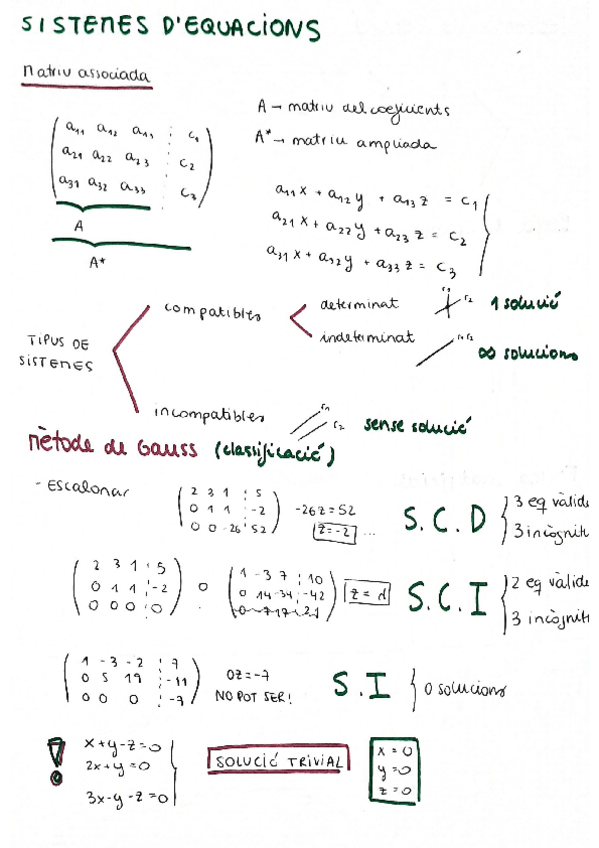 SISTEMES D'EQUACIONS
Matriu associada
A → matriu del coeficients
A* → matriu ampliada
a11 a12 a13 ⋮ c1
a21 a22 a23 ⋮ c2
a31 a32 a33 ⋮ c3
A
A*
a11 x + a12 y + a13 z = c1
a21 x + a22 y + a23 z = c2
a31 x + a32 y + a33 z = c3
TIPUS DE
SISTEMES
compatibles
determinat r1 r2 1 solució
indeterminat r1 r2 ∞ solucions
incompatibles r1 r2 sense solució
Mètode de Gauss (classificació)
- ESCALONAR
2 3 1 ⋮ 5
0 1 1 ⋮ -2
0 0 -26 ⋮ 52
-26z = 52
z = -2 ...
S.C.D
3 eq vàlide
3 incògnit
2 3 1 ⋮ 5
0 1 1 ⋮ -2
0 0 0 ⋮ 0
o
1 -3 7 ⋮ 10
0 14 -34 ⋮ -42
0 -7 17 ⋮ 21
z = d
S.C.I
2 eq vàlide
3 incògnit
1 -3 -2 ⋮ 7
0 5 19 ⋮ -11
0 0 0 ⋮ -7
0z = -7
NO POT SER!
S.I
0 solucions
!
x+y-z=0
2x+y=0
3x-y-z=0
SOLUCIÓ TRIVIAL
x=0
y=0
z=0